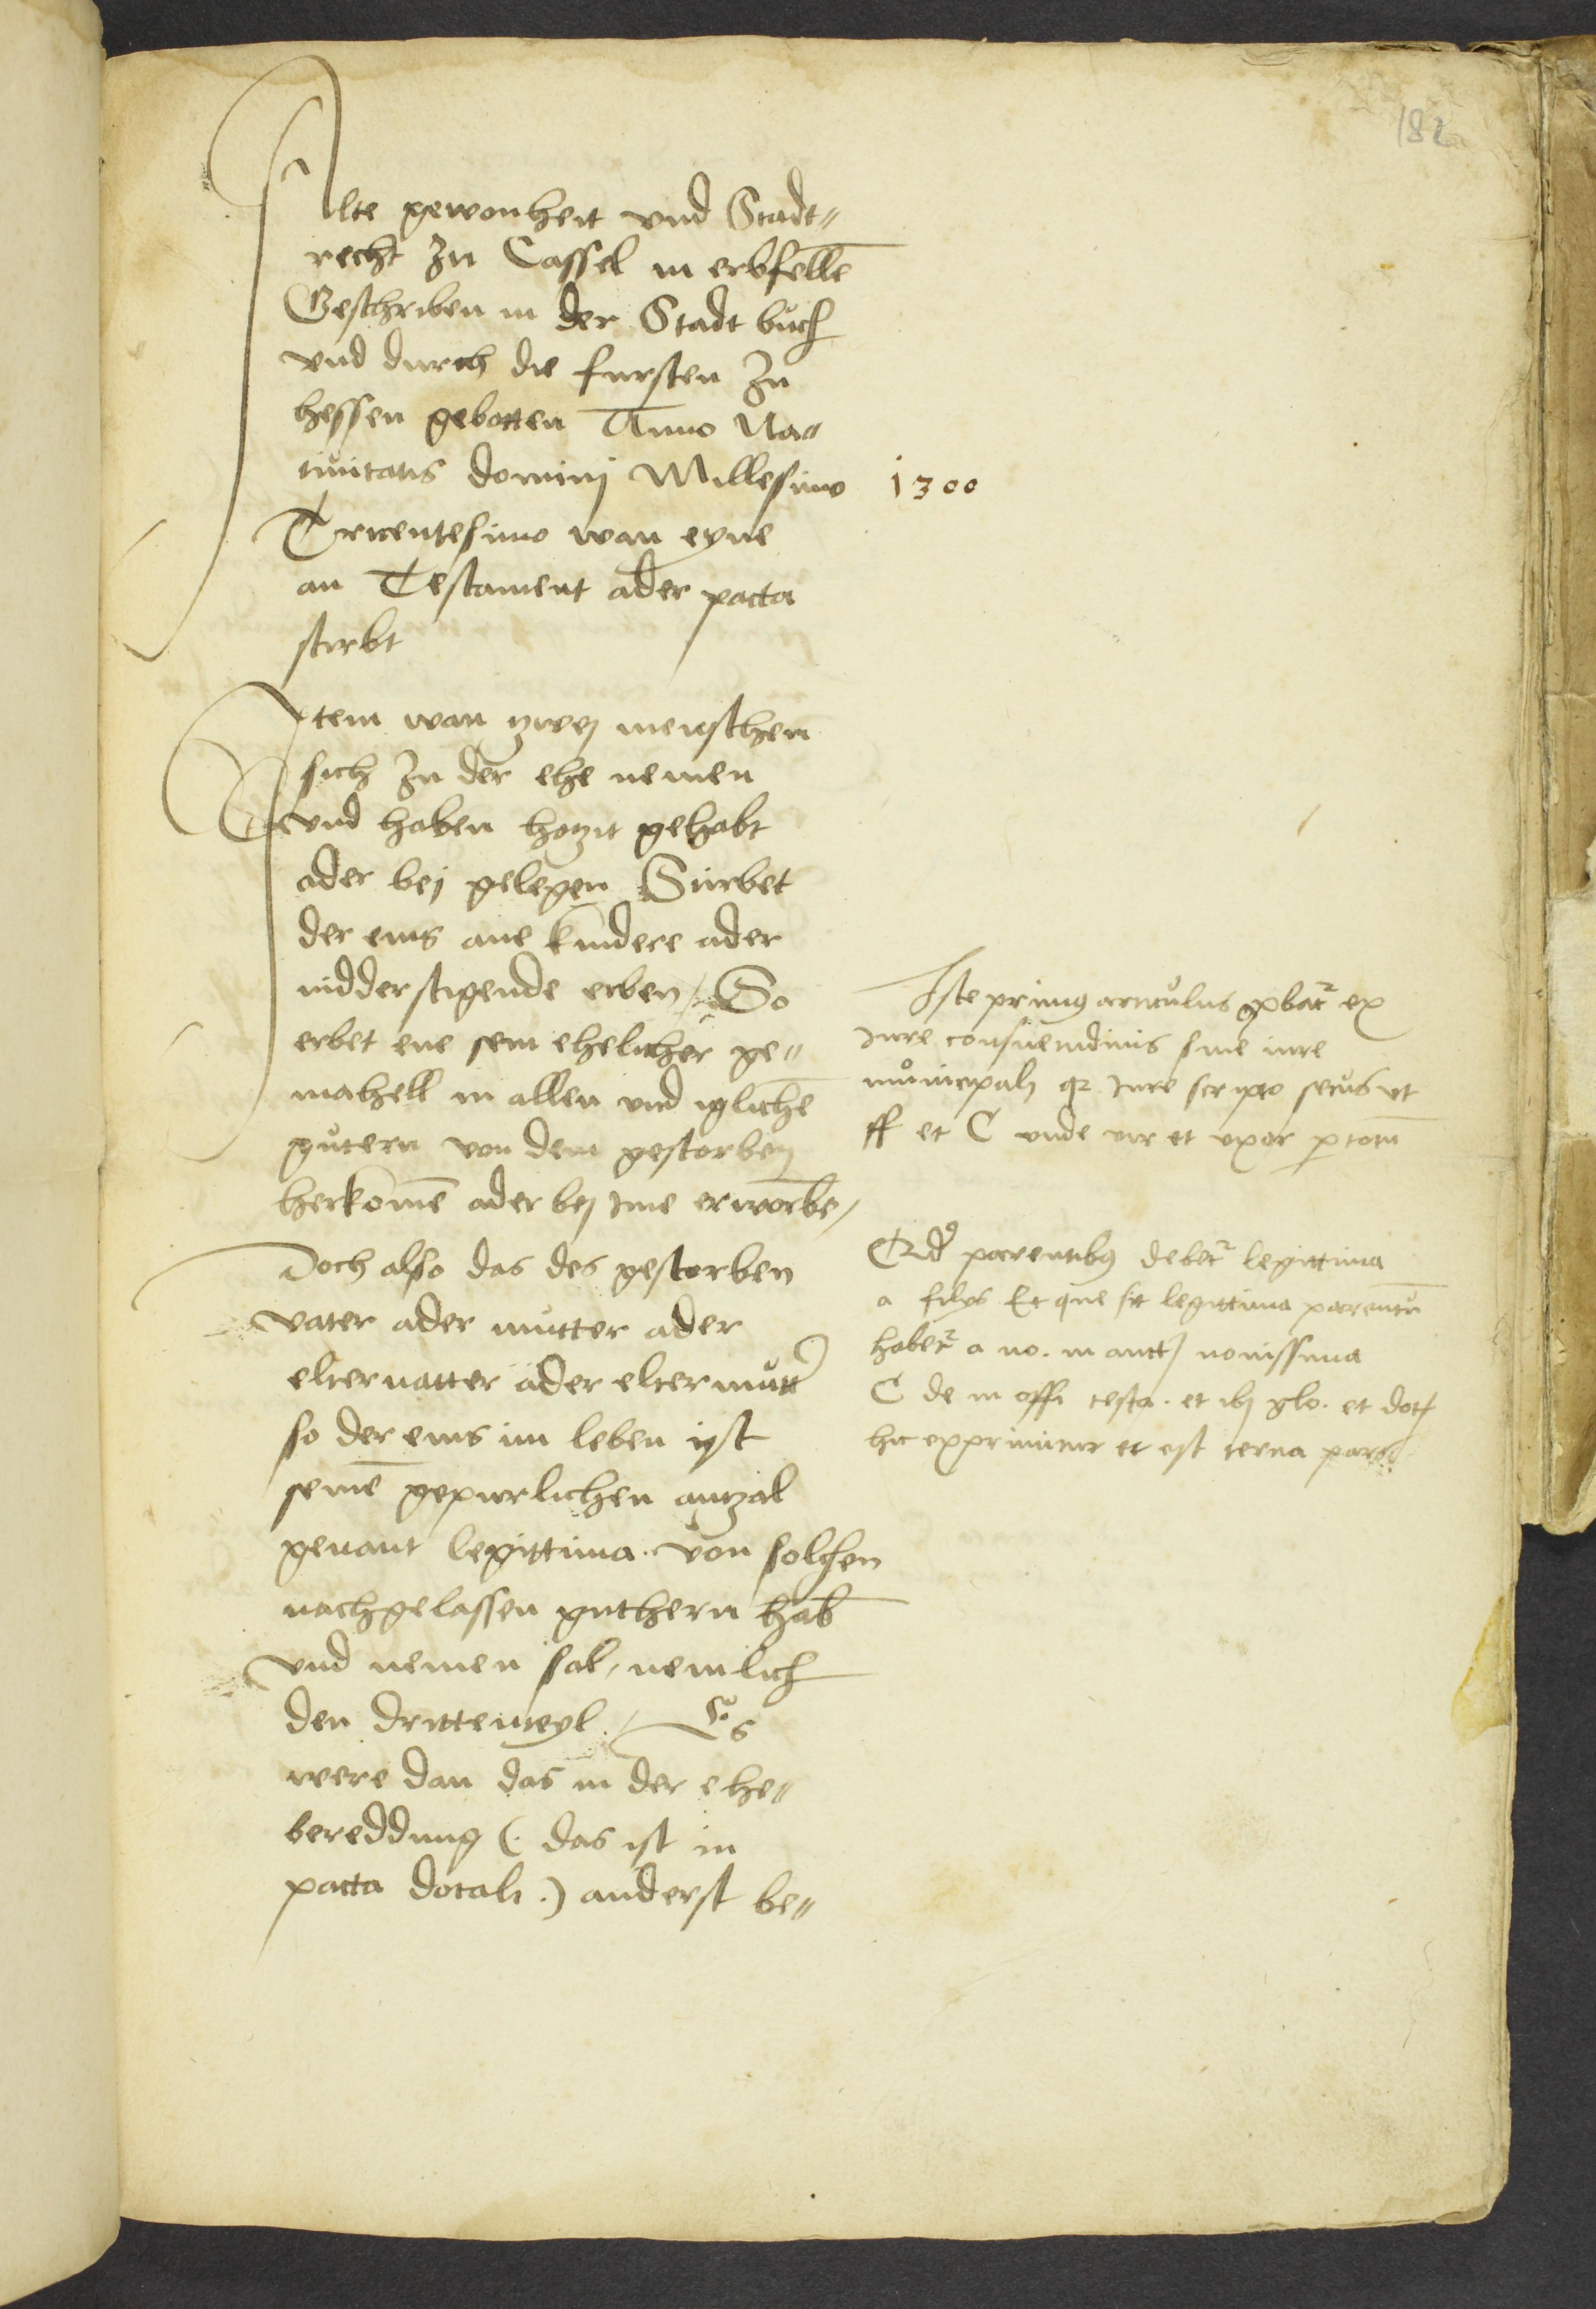 182
Alte gewonheit vnd Stadt=
recht zu Cassel in erbfellē
Geschriben in der Stadt buch
vnd durch die fursten zu
hessen gebotten Anno Na=
tiuitatis dominj Millesimo 1300
Tricentesimo wan eyne
an Testament ader pacta
stirbt
Item wan zwej menschen
sich zu der ehe nemen
vnd haben hozit gehabt
ader bej gelegen Stirbet
der eins ane kindere ader
nidderstigende erben / So
erbet ene sein ehelicher ge=
mahell in allen vnd iglichē
gutern von dem gestorben
herkomē ader bej Ime erworbē /
Doch also das des gestorben
vater ader mutter ader
elteruatter ader eltermutt
so der eins im leben ist
seinē gepurlichen antzal
genant legittima. von solchen
nachgelassen guthern hab
vnd nemen sal, nemlich
den dritteteyl / Es
were dan das in der ehe=
bereddung (. das ist in
pacta dotali .) anderst be=
Iste primus articulus probat ex
Iure consuetudinis siue iure
municipali qr Iure scripto secus vt
ff et C vnde vir et vxor p totū
Qd parentibus debet legittima
a filijs Et que sit legittima parentū
habet a no. in autt novissima
C de in offi testa. et ibi glo. et dot
hic exprimitur et est terna pars